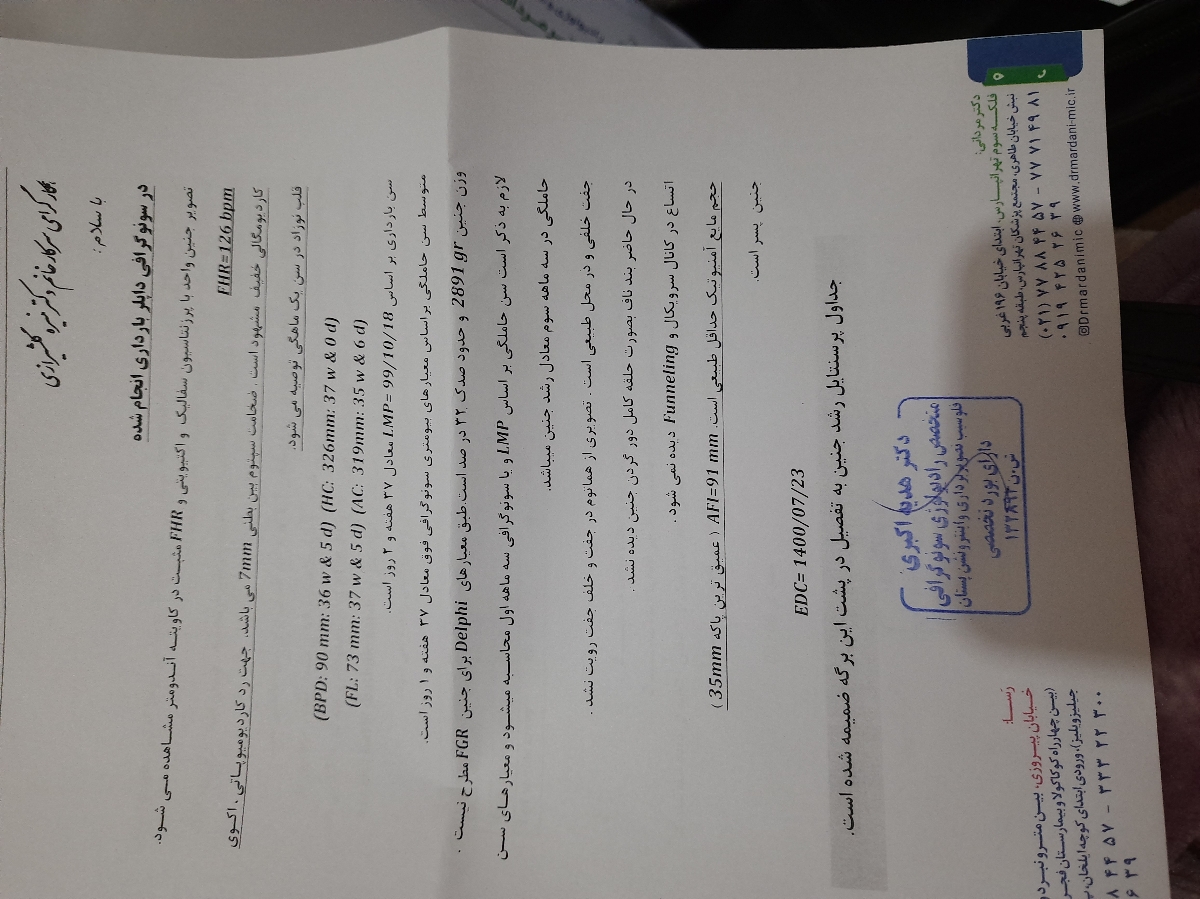 همکار گرامی سرکار خانم دکتر نیره گلشیرازی
با سلام :
در سونوگرافی داپلر بارداری انجام شده
تصویر جنین واحد با پرزنتاسیون سفالیک و اکتیویتی و FHR مثبت در کاویته آندومتر مشاهده می شود.
FHR=126 bpm
کاردیومگالی خفیف مشهود است . ضخامت سپتوم بین بطنی 7mm می باشد. جهت رد کاردیومیوپاتی . اکوی
قلب نوزاد در سن یک ماهگی توصیه می شود.
(BPD: 90 mm: 36 w & 5 d) (HC: 326mm: 37 w & 0 d)
(FL: 73 mm: 37 w & 5 d) (AC: 319mm: 35 w & 6 d)
سن بارداری بر اساس LMP= 99/10/18 معادل ۳۷ هفته و ۲ روز است.
متوسط سن حاملگی براساس معیارهای بیومتری سونوگرافی فوق معادل ۳۷ هفته و ۱ روز است.
وزن جنین 2891 gr و حدود صدک ۳۲ در صد است.طبق معیارهای Delphi برای جنین FGR مطرح نیست .
لازم به ذکر است سن حاملگی بر اساس LMP و یا سونوگرافی سه ماهه اول محاسبه میشود و معیارهای سن
حاملگی در سه ماهه سوم معادل رشد جنین میباشد.
در حال حاضر بند ناف بصورت حلقه کامل دور گردن جنین دیده نشد .
جفت خلفی و در محل طبیعی است . تصویری از هماتوم در جفت و خلف جفت رویت نشد .
اتساع در کانال سرویکال و Funneling دیده نمی شود .
حجم مایع آمنیوتیک حداقل طبیعی است. AFI=91 mm ( عمیق ترین پاکه 35mm )
جنین پسر است .
EDC= 1400/07/23
جداول پرسنتایل رشد جنین به تفصیل در پشت این برگه ضمیمه شده است.
دکتر هدیه اکبری
متخصص رادیولوژی سونوگرافی
فلوشیپ تصویربرداری و اینترونشن پستان
دارای بورد تخصصی
دکتر مردانی:
فلکه سوم تهرانپارس، ابتدای خیابان ۱۹۶ غربی
نبش خیابان طاهری، مجتمع پزشکان تهرانپارس، طبقه پنجم
(۰۲۱) ۷۷ ۸۸ ۴۴ ۵۷ - ۷۷ ۷۱ ۴۹ ۸۱
۰۹۱۹ ۴۲۵ ۲۶ ۳۹
@Drmardanimic www.drmardani-mic.ir
رسا:
خیابان پیروزی، بین مترو نبرد و
(بین چهارراه کوکاکولا و بیمارستان فجر
جیلیزویلیز)، ورودی ابتدای کوچه ایلخان،
۸ ۴۴ ۵۷ - ۳۳۳ ۲۲ ۳۰۰
۶ ۳۹